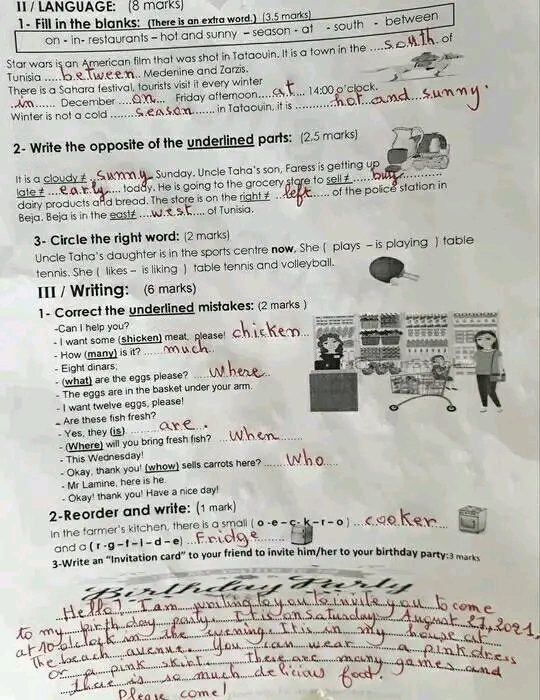 II / LANGUAGE: (8 marks)
1- Fill in the blanks: (There is an extra word.) (3.5 marks)
on - in- restaurants – hot and sunny – season – at - south - between
Star wars is an American film that was shot in Tataouin. It is a town in the ....South. of
Tunisia .....between.. Medenine and Zarzis.
There is a Sahara festival, tourists visit it every winter
..in..... December ....on... Friday afternoon....at.... 14:00 o'clock.
Winter is not a cold .......season....... in Tataouin, it is ...........hot..and..sunny.
2- Write the opposite of the underlined parts: (2.5 marks)
It is a cloudy ≠ ..Sunny.. Sunday. Uncle Taha's son, Faress is getting up
late ≠ ...early..... today. He is going to the grocery store to sell ≠ .....buy..........
dairy products and bread. The store is on the right ≠ ...left...... of the police station in
Beja. Beja is in the east≠ ...west.... of Tunisia.
3- Circle the right word: (2 marks)
Uncle Taha's daughter is in the sports centre now. She ( plays – is playing ) table
tennis. She ( likes – is liking ) table tennis and volleyball.
III / Writing: (6 marks)
1- Correct the underlined mistakes: (2 marks )
-Can I help you?
- I want some (shicken) meat, please! chicken...
- How (many) is it? .....much...
- Eight dinars;
- (what) are the eggs please? .....Where...
- The eggs are in the basket under your arm.
- I want twelve eggs, please!
- Are these fish fresh?
- Yes, they (is) .........are.
- (Where) will you bring fresh fish? ...When.......
- This Wednesday!
- Okay, thank you! (whow) sells carrots here? ......Who....
- Mr Lamine, here is he.
- Okay! thank you! Have a nice day!
2-Reorder and write: (1 mark)
In the farmer's kitchen, there is a small ( o -e – c- k –r – o ) ...cooker
and a ( r -g –f – I – d – e ) ...Fridge.......
3-Write an "Invitation card" to your friend to invite him/her to your birthday party:3 marks
Birthday Party
Hello! I am writing to you to invite you to come
to my birth day party. It is on Saturday August 27, 2021,
at 10 o'clock in the evening. It is in my house at
The beach avenue. You can wear a pink dress
or a pink skirt. There are many games and
there is so much delicious food.
Please come!